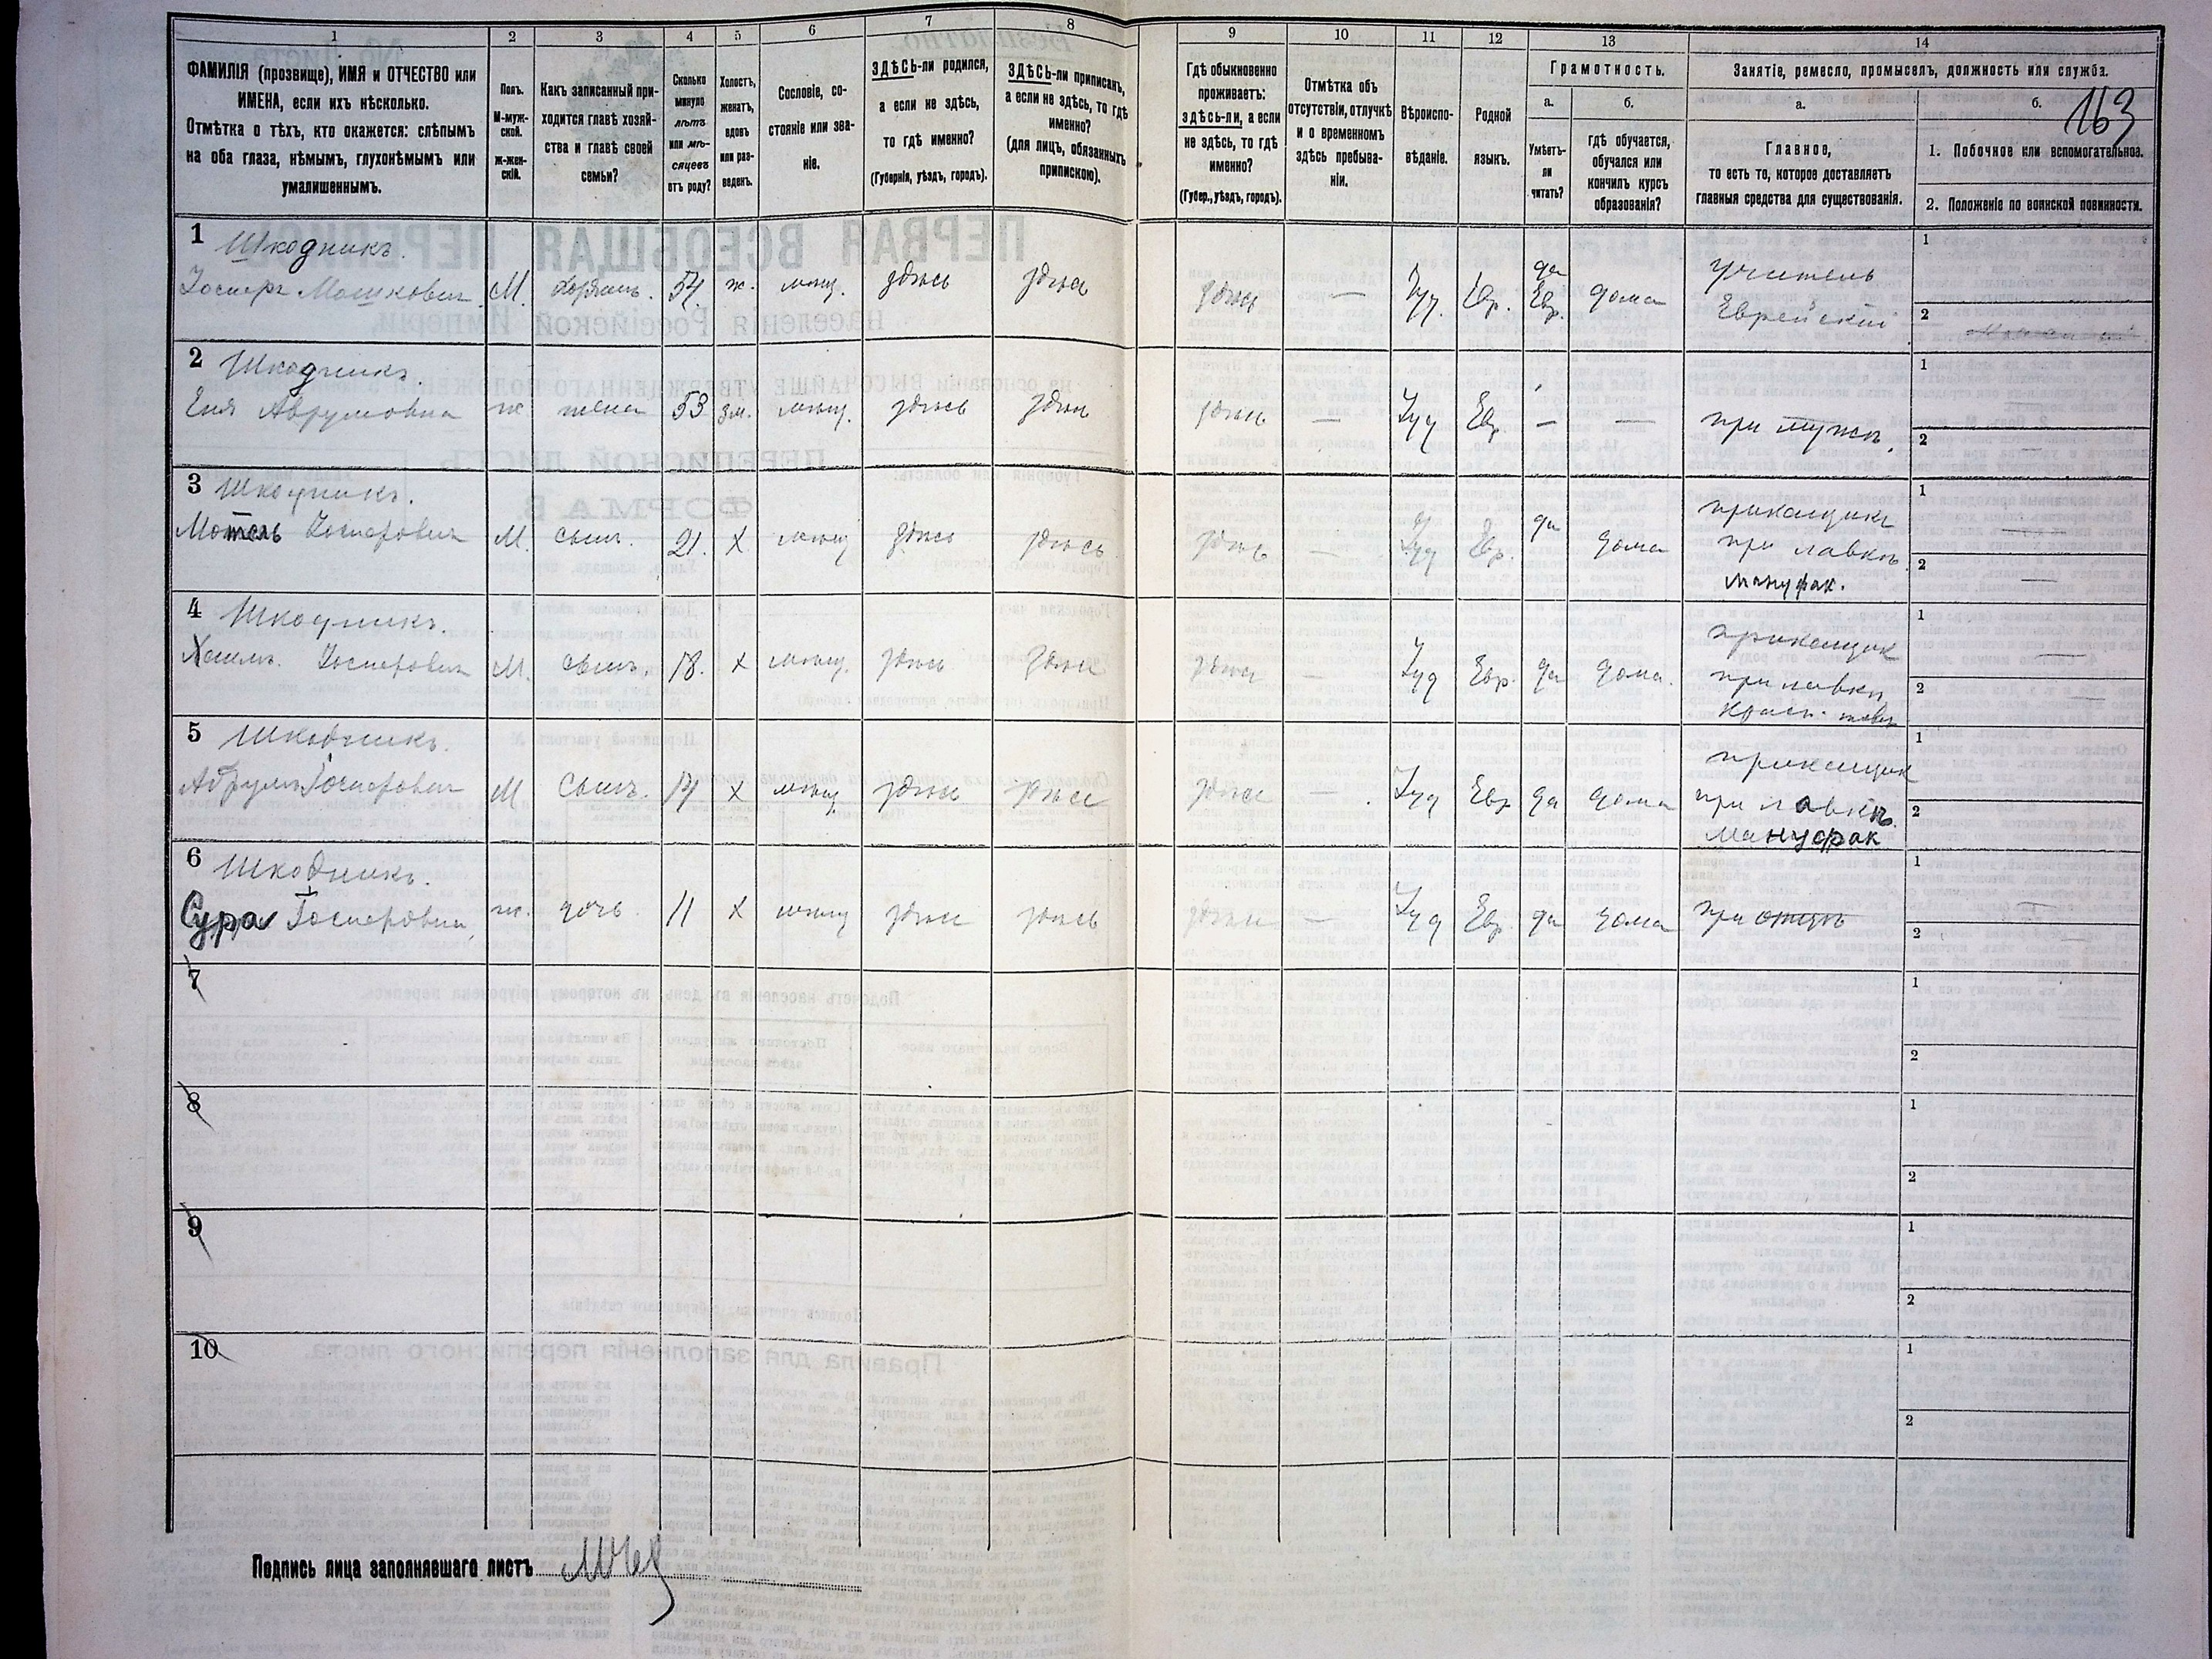 1 2 3 4 5 6 7 8 9 10 11 12 13 14
ФАМИЛІЯ (прозвище), ИМЯ и ОТЧЕСТВО или
ИМЕНА, если ихъ нѣсколько.
Отмѣтка о тѣхъ, кто окажется: слѣпымъ
на оба глаза, нѣмымъ, глухонѣмымъ или
умалишеннымъ.
Полъ.
М-муж-
ской.
ж-жен-
скій.
Какъ записанный при-
ходится главѣ хозяй-
ства и главѣ своей
семьи?
Сколько
минуло
лѣтъ
или мѣ-
сяцевъ
отъ роду?
Холостъ,
женатъ,
вдовъ
или раз-
веденъ.
Сословіе, со-
стояніе или зва-
ніе.
ЗДѢСЬ-ли родился,
а если не здѣсь,
то гдѣ именно?
(Губернія, уѣздъ, городъ).
ЗДѢСЬ-ли приписанъ,
а если не здѣсь, то гдѣ
именно?
(для лицъ, обязанныхъ
припискою).
Гдѣ обыкновенно
проживаетъ:
здѣсь-ли, а если
не здѣсь, то гдѣ
именно?
(Губер., уѣздъ, городъ).
Отмѣтка объ
отсутствіи, отлучкѣ
и о временномъ
здѣсь пребыва-
ніи.
Вѣроиспо-
вѣданіе.
Родной
языкъ.
Грамотность.
а. б.
Умѣетъ-
ли
читать?
гдѣ обучается,
обучался или
кончилъ курсъ
образованія?
Занятіе, ремесло, промыселъ, должность или служба.
а. б.
163
Главное,
то есть то, которое доставляетъ
главныя средства для существованія.
1. Побочное или вспомогательное.
2. Положеніе по воинской повинности.
1 Шкодникъ.
М. 54. ж. мѣщ. здѣсь здѣсь здѣсь — Іуд. Евр. да Евр. дома учитель
Еврейскій
1
2
2 Шкодникъ.
Аврумовна ж жена 53 зм. мѣщ. здѣсь здѣсь здѣсь — Іуд Евр — — при мужѣ.
1
2 —
3 Шкодникъ.
Мотель М. сынъ. 21. Х мѣщ здѣсь здѣсь здѣсь — Іуд Евр. да дома прикащикъ
при лавкѣ
мануфак.
1 —
2 —
4 Шкодникъ.
М. сынъ. 18. х мѣщ. здѣсь здѣсь здѣсь — Іуд Евр. да дома. прикащик
при лавкѣ
красн. товар
1 —
2 —
5 Шкодникъ.
М Сынъ. 14 х мѣщ здѣсь здѣсь здѣсь — Іуд Евр да дома прикащик
при лавкѣ.
мануфак
1
2
6 Шкодникъ.
Сура ж. дочь 11 х мѣщ здѣсь здѣсь здѣсь — Іуд Евр. да дома при отцѣ
1 —
2 —
7
1
2
8
1
2
9
1
2
10
1
2
Подпись лица заполнявшаго листъ